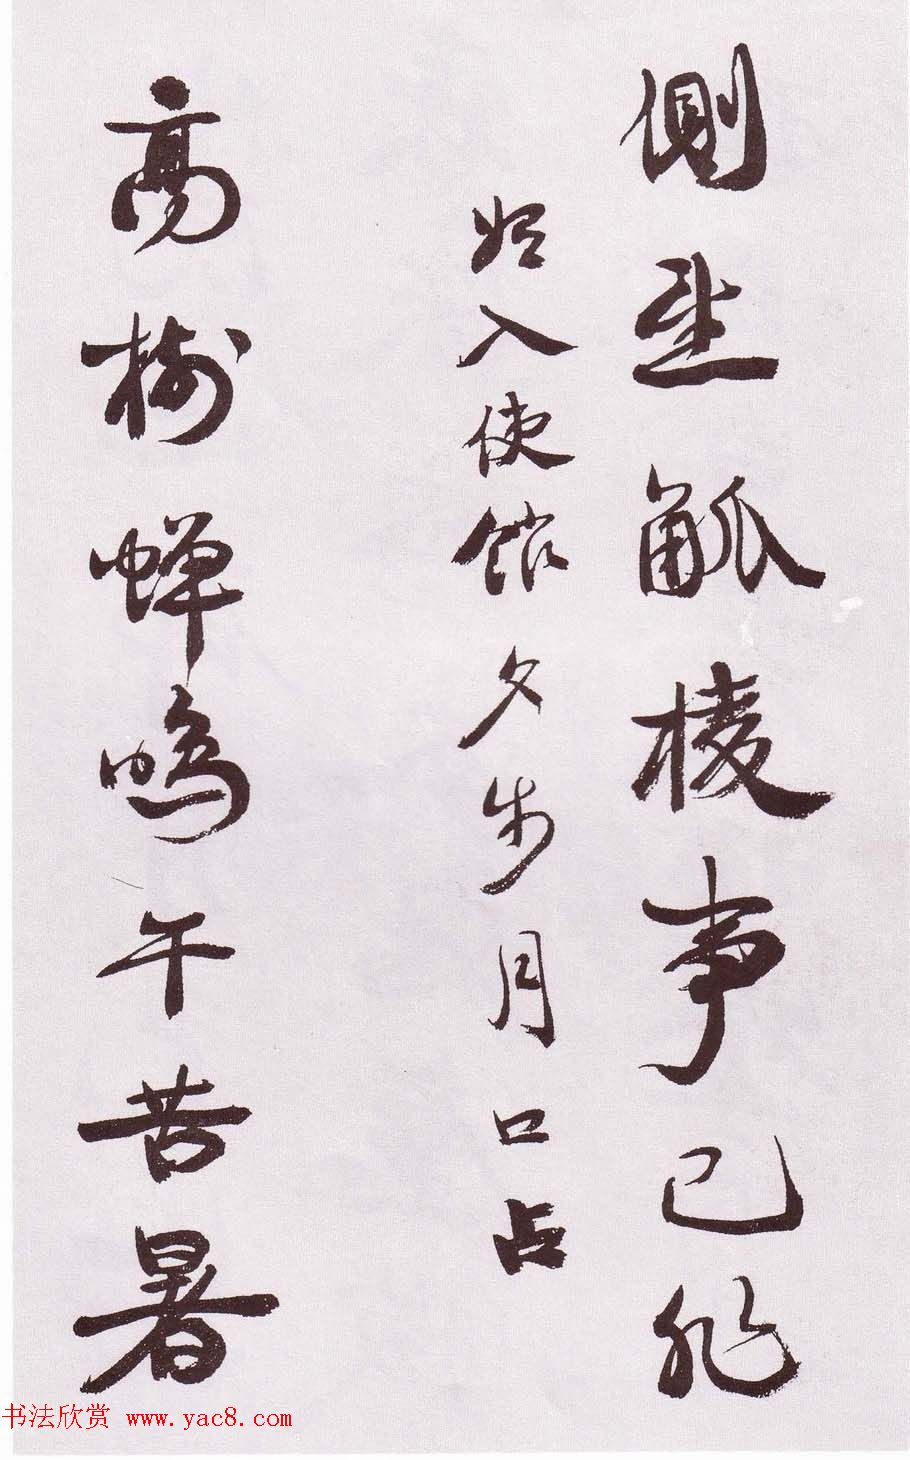 側坐觚棱事已非
始入使館夕步月口占
高樹蟬鳴午苦暑
书法欣赏 www.yac8.com